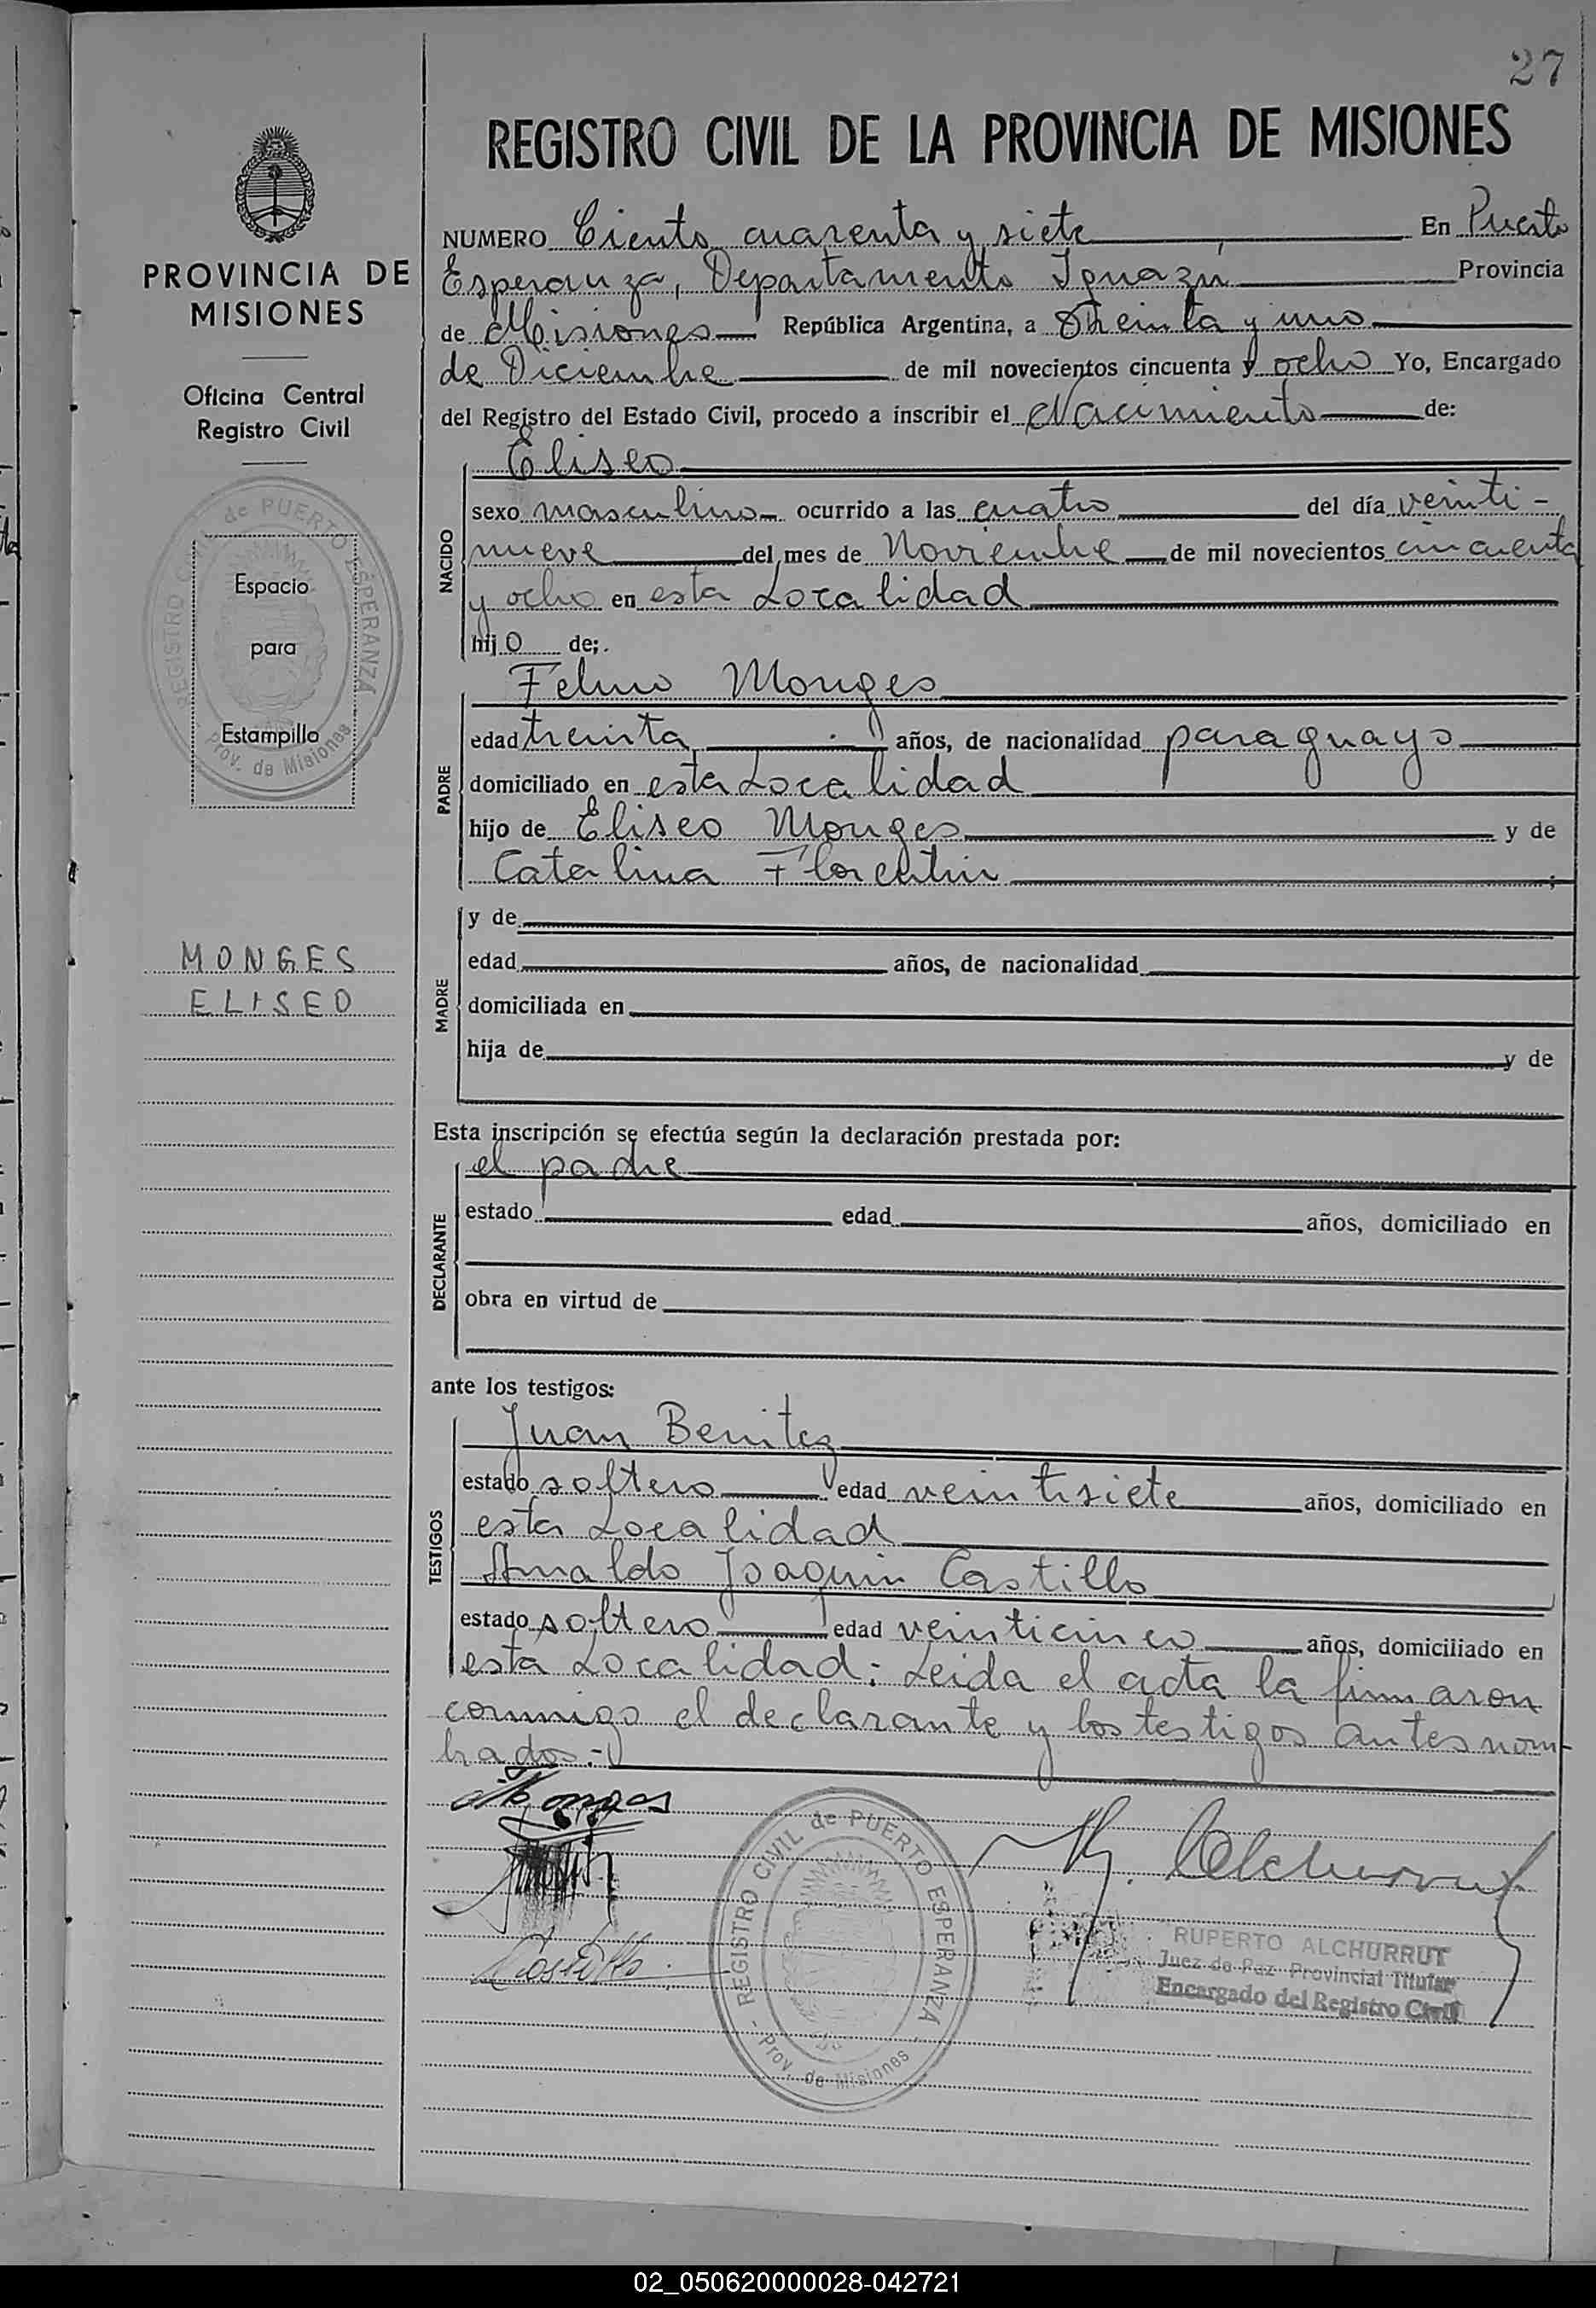 27
REGISTRO CIVIL DE LA PROVINCIA DE MISIONES
PROVINCIA DE
MISIONES
Oficina Central
Registro Civil
REGISTRO CIVIL de PUERTO ESPERANZA
Prov. de Misiones
Espacio
para
Estampillo
MONGES
ELISEO
NUMERO Ciento cuarenta y siete En Puerto
Esperanza, Departamento Iguazú Provincia
de Misiones República Argentina, a Treinta y uno
de Diciembre de mil novecientos cincuenta y ocho Yo, Encargado
del Registro del Estado Civil, procedo a inscribir el Nacimiento de:
NACIDO
Eliseo
sexo masculino ocurrido a las cuatro del día veinti-
nueve del mes de Noviembre de mil novecientos cincuenta
y ocho en esta Localidad
hijo de;.
PADRE
Monges
edad treinta años, de nacionalidad paraguayo
domiciliado en esta Localidad
hijo de Eliseo Monges y de
Catalina Florentin
MADRE
y de
edad años, de nacionalidad
domiciliada en
hija de y de
Esta inscripción se efectúa según la declaración prestada por:
DECLARANTE
el padre
estado edad años, domiciliado en
obra en virtud de
ante los testigos:
TESTIGOS
Juan Benitez
estado soltero edad veintisiete años, domiciliado en
esta Localidad
Arnaldo Joaquin Castillo
estado soltero edad veinticinco años, domiciliado en
esta Localidad: Leida el acta la firmaron
conmigo el declarante y los testigos antes nom-
brados.-
Monges
Castillo
R. Alchurrut
REGISTRO CIVIL de PUERTO ESPERANZA
- Prov. de Misiones -
RUPERTO ALCHURRUT
Juez de Paz Provincial Titular
Encargado del Registro Civil
02_050620000028-042721